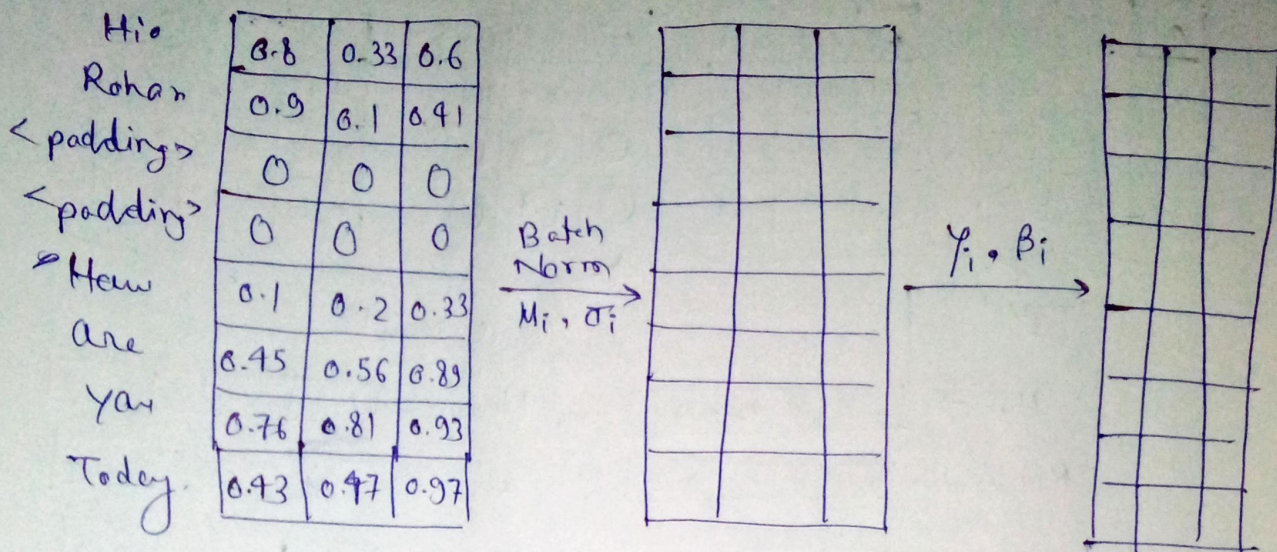 Hi 0.8 0.33 0.6
Rohan 0.9 0.1 0.41
<padding> 0 0 0
<padding> 0 0 0
How 0.1 0.2 0.33
are 0.45 0.56 0.89
you 0.76 0.81 0.93
Today. 0.43 0.47 0.97
Batch
Norm
μi, σi
γi, βi